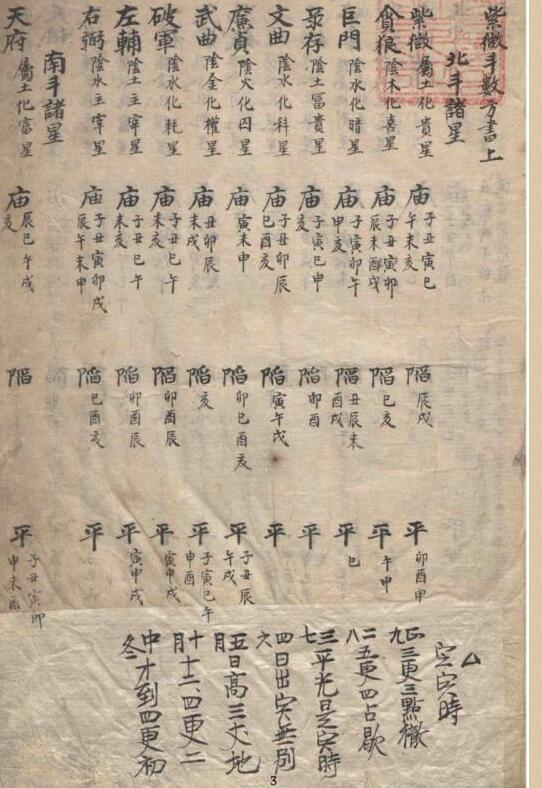 紫微斗數方書上
北斗諸星
紫微 屬土化貴星 庙 子丑寅巳午未亥 陷 辰戌 平 卯酉申
貪狼 陰木化喜星 庙 子丑寅卯辰未酉戌 陷 巳亥 平 午申
巨門 陰水化暗星 庙 子寅卯午申亥 陷 丑辰未酉戌 平 巳
录存 陰土冨貴星 庙 子寅巳申亥 陷 卯酉 平
文曲 陰水化科星 庙 子丑卯辰巳酉亥 陷 寅午戌 平
廉貞 陰火化囚星 庙 寅未申 陷 卯巳酉亥 平 子丑辰午戌
武曲 陰金化權星 庙 丑卯辰未戌 陷 亥 平 子寅巳午申酉
破軍 陰水化耗星 庙 子丑巳午未亥 陷 卯酉辰 平 寅申戌
左輔 陰土主宰星 庙 子丑巳午未亥 陷 卯酉辰 平 寅申戌
右弼 陰水主宰星 庙 子丑寅卯戌辰午未申 陷 巳酉亥 平
南斗諸星
天府 屬土化富星 庙 辰巳午戌亥 陷 平 子丑寅卯申未酉
定寅時
正九三更三點徹
二八五更四占歇
三七平光是寅時
四六日出寅無別
五月日高三丈地
十月十二四更二
中冬才到四更初
3